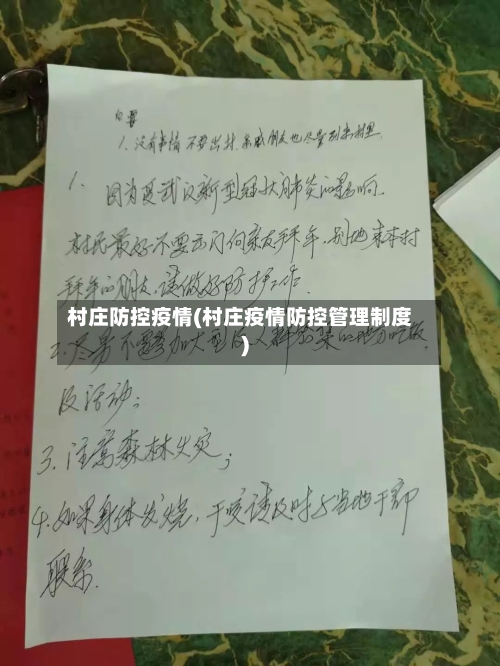 1、没有事情不要出村,亲戚朋友也尽量别来村里.
1. 因为受武汉新型冠状肺炎的影响.
村民最好不要出门向亲友拜年,别地来本村
拜年的朋友,请做好防护工作.
村庄防控疫情(村庄疫情防控管理制度
)
2.尽量不要参加大型
及活动;
3.注意森林火灾;
4.如果身体发烧,干咳请及时与当地干部
联系.